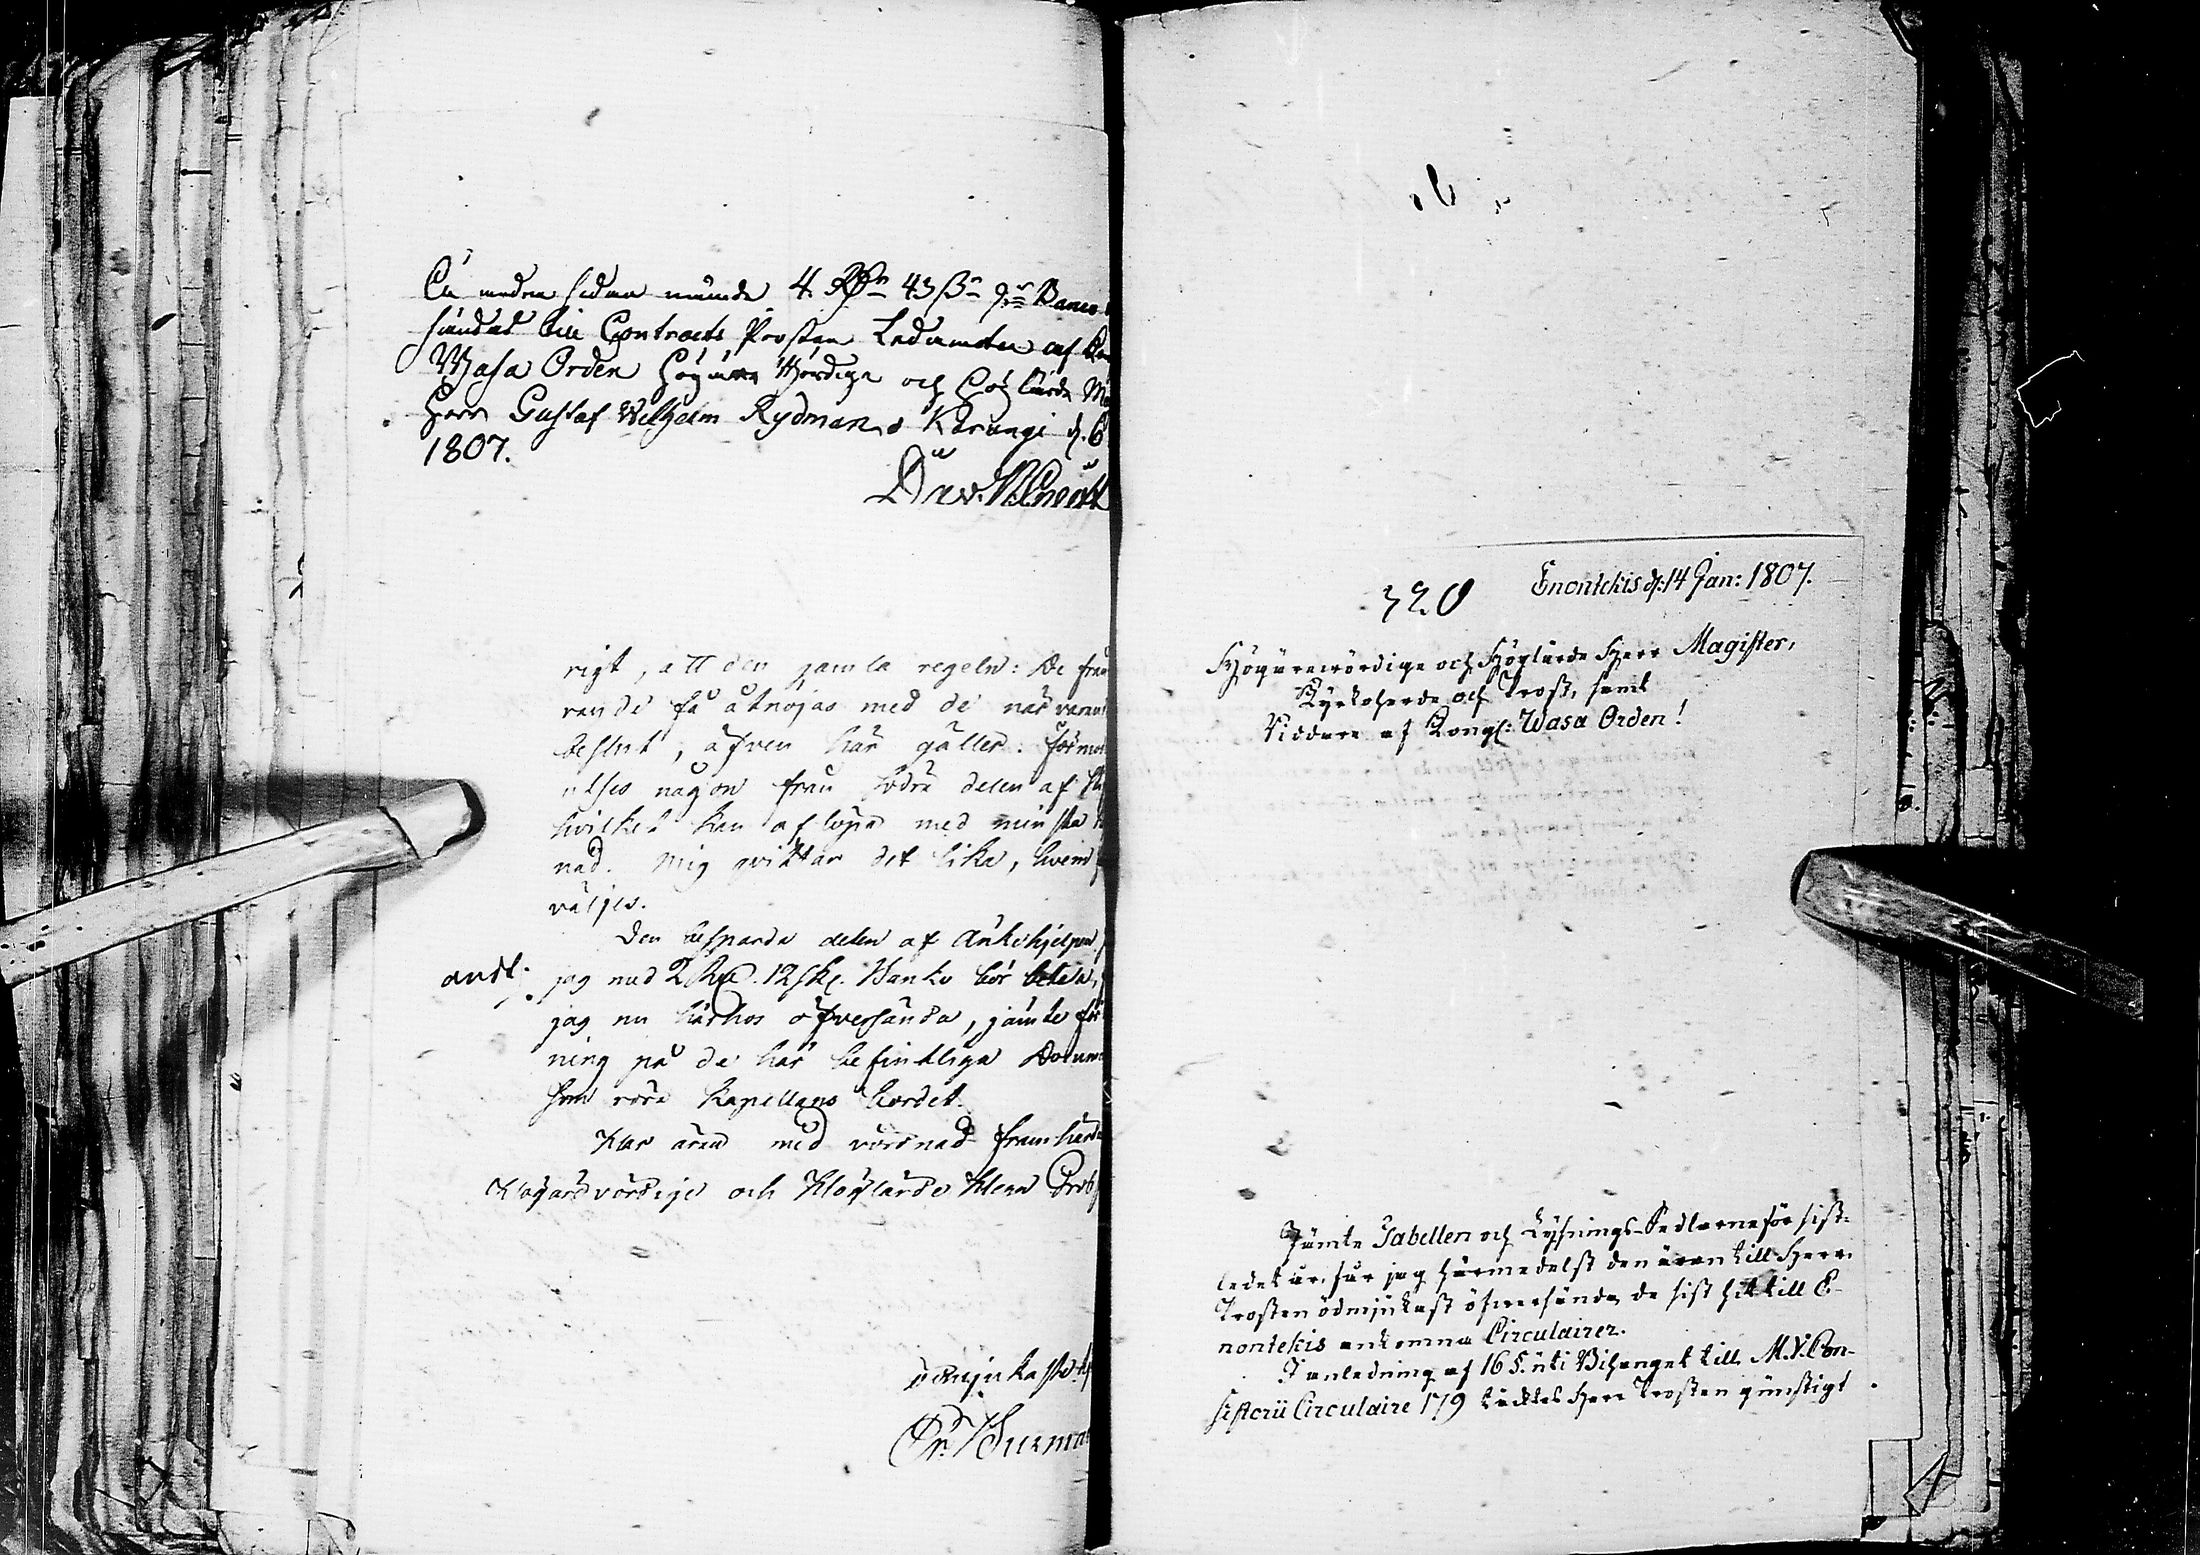 På andra sidan nämde 4 Rdr 43 ß Banco
händat till Contracts Prosten Ledamoten af
Wasa Orden Högärewördige och Höglärde
Herr Gustaf Wilhelm Rydman. Karungi d. 6
1807.
rigt, att den gamla regeln: De från
varande få åtnöjas med de närvaran
beslut, äfven här gäller. Förmo
utses någon från södra delen af
hvilket kan aflöpa med minsta
nad. Mig gvittar det lika, hvem
väljes.
Den besparda delen af Ankehjelpen
jag med 2 Rd. 12 sk. Banko bör betala,
jag nu härhos öfversända, jämte för
ning på de här befintliga Docum
som röra Kapellans bordet.
Har äran med vördnad framhärda
Högärevördige och Höglärde Herr Prob
ödmjukaste
320
Enontekis d. 14 Jan: 1807.
Högärewördige och Höglärde Herr Magister,
Kyrkoherde och Prost, samt
Riddare af Kongl: Wasa Orden!
Jämte Tabellen och Lysnings-Sedlarne för sist-
ledet år, får jag härmedelst den äran till Herr
Prosten ödmjukast öfwersända de sist hit till E-
nontekis ankomna Circulairer.
I anledning af 16 §. uti Bihanget till M. V. Con-
sistorii Circulaire 179 täcktes Herr Prosten gunstigt